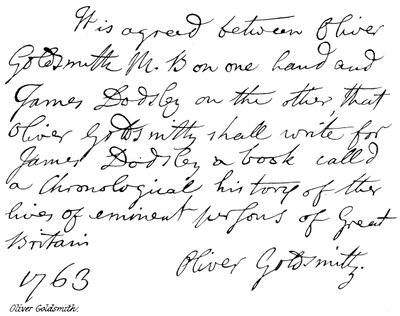 It is agreed between Oliver
Goldsmith M. B on one hand and
James Dodsley on the other, that
Oliver Goldsmith shall write for
James Dodsley a book called
a Chronological history of the
lives of eminent persons of Great
Britain
1763 Oliver Goldsmith.
Oliver Goldsmith.